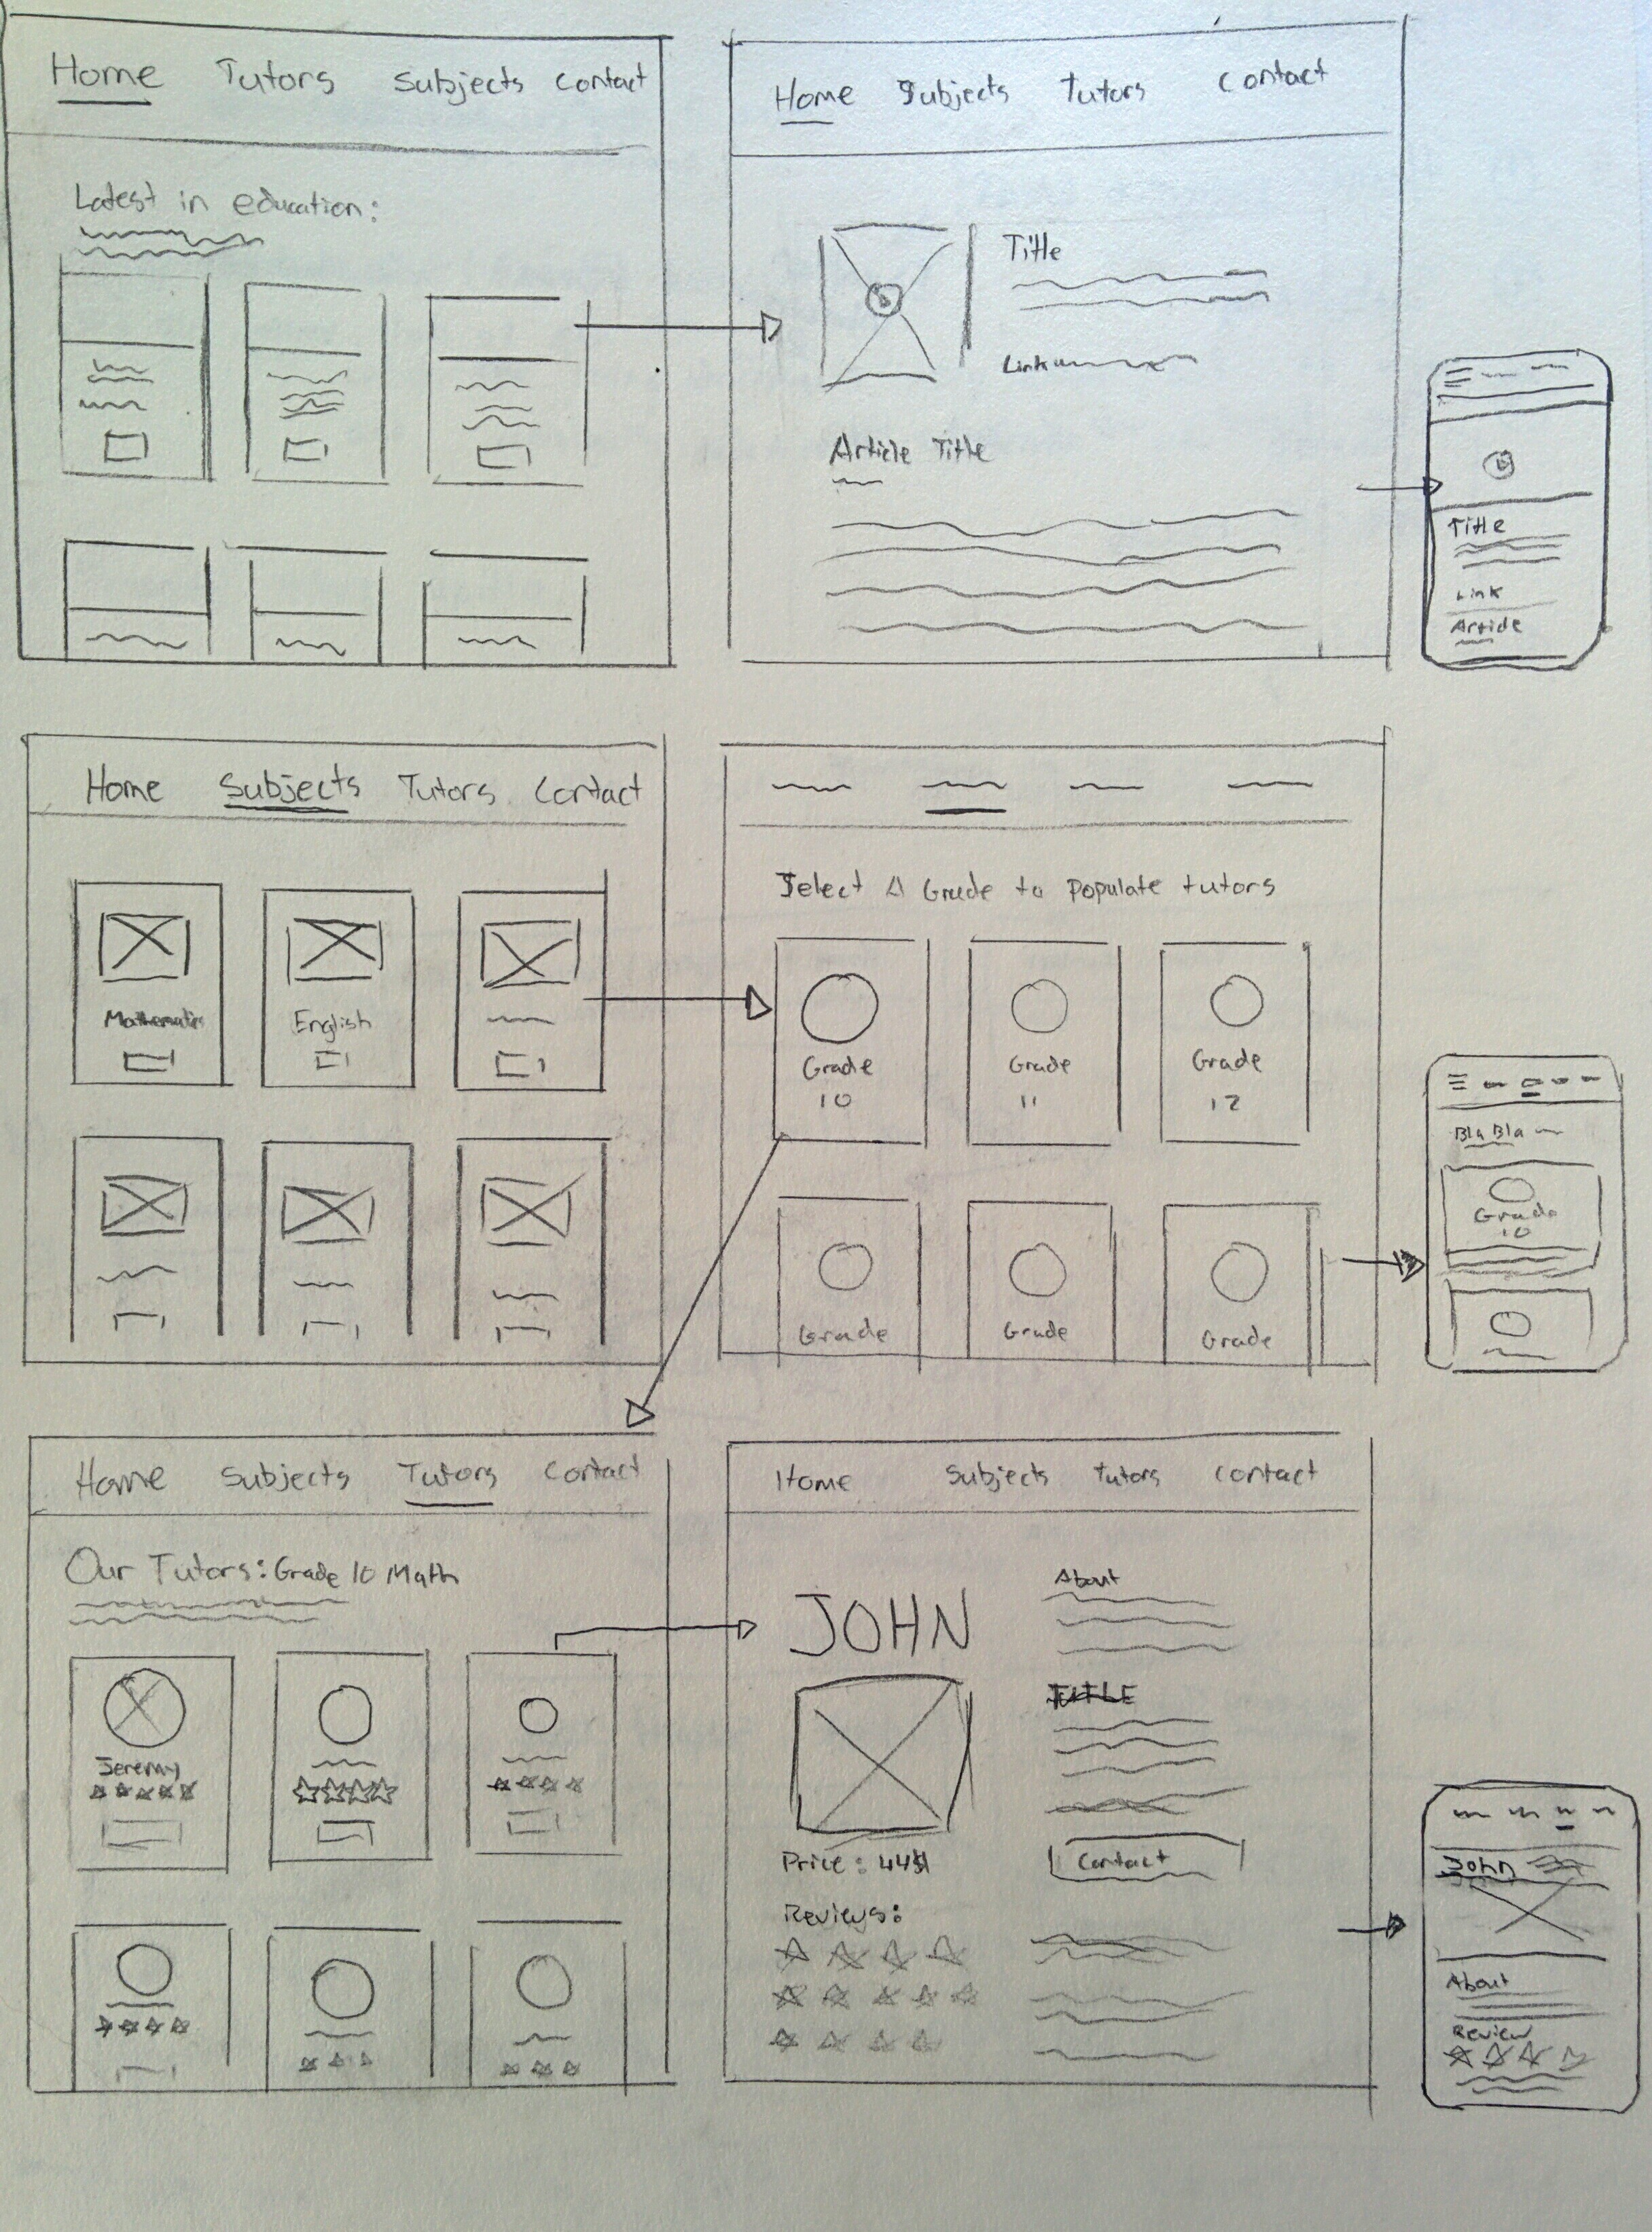 Home Tutors Subjects Contact
Latest in education:
Home Subjects Tutors Contact
Title
Link
Article Title
Title
Link
Article
Home Subjects Tutors Contact
Mathematics
English
Select A Grade to Populate tutors
Grade Grade Grade
10 11 12
Grade Grade Grade
Bla Bla
Grade
10
Home Subjects Tutors Contact
Our Tutors: Grade 10 Math
Jeremy
Home Subjects Tutors Contact
JOHN
About
TITLE
Price: 44$
Contact
Reviews:
John
About
Review